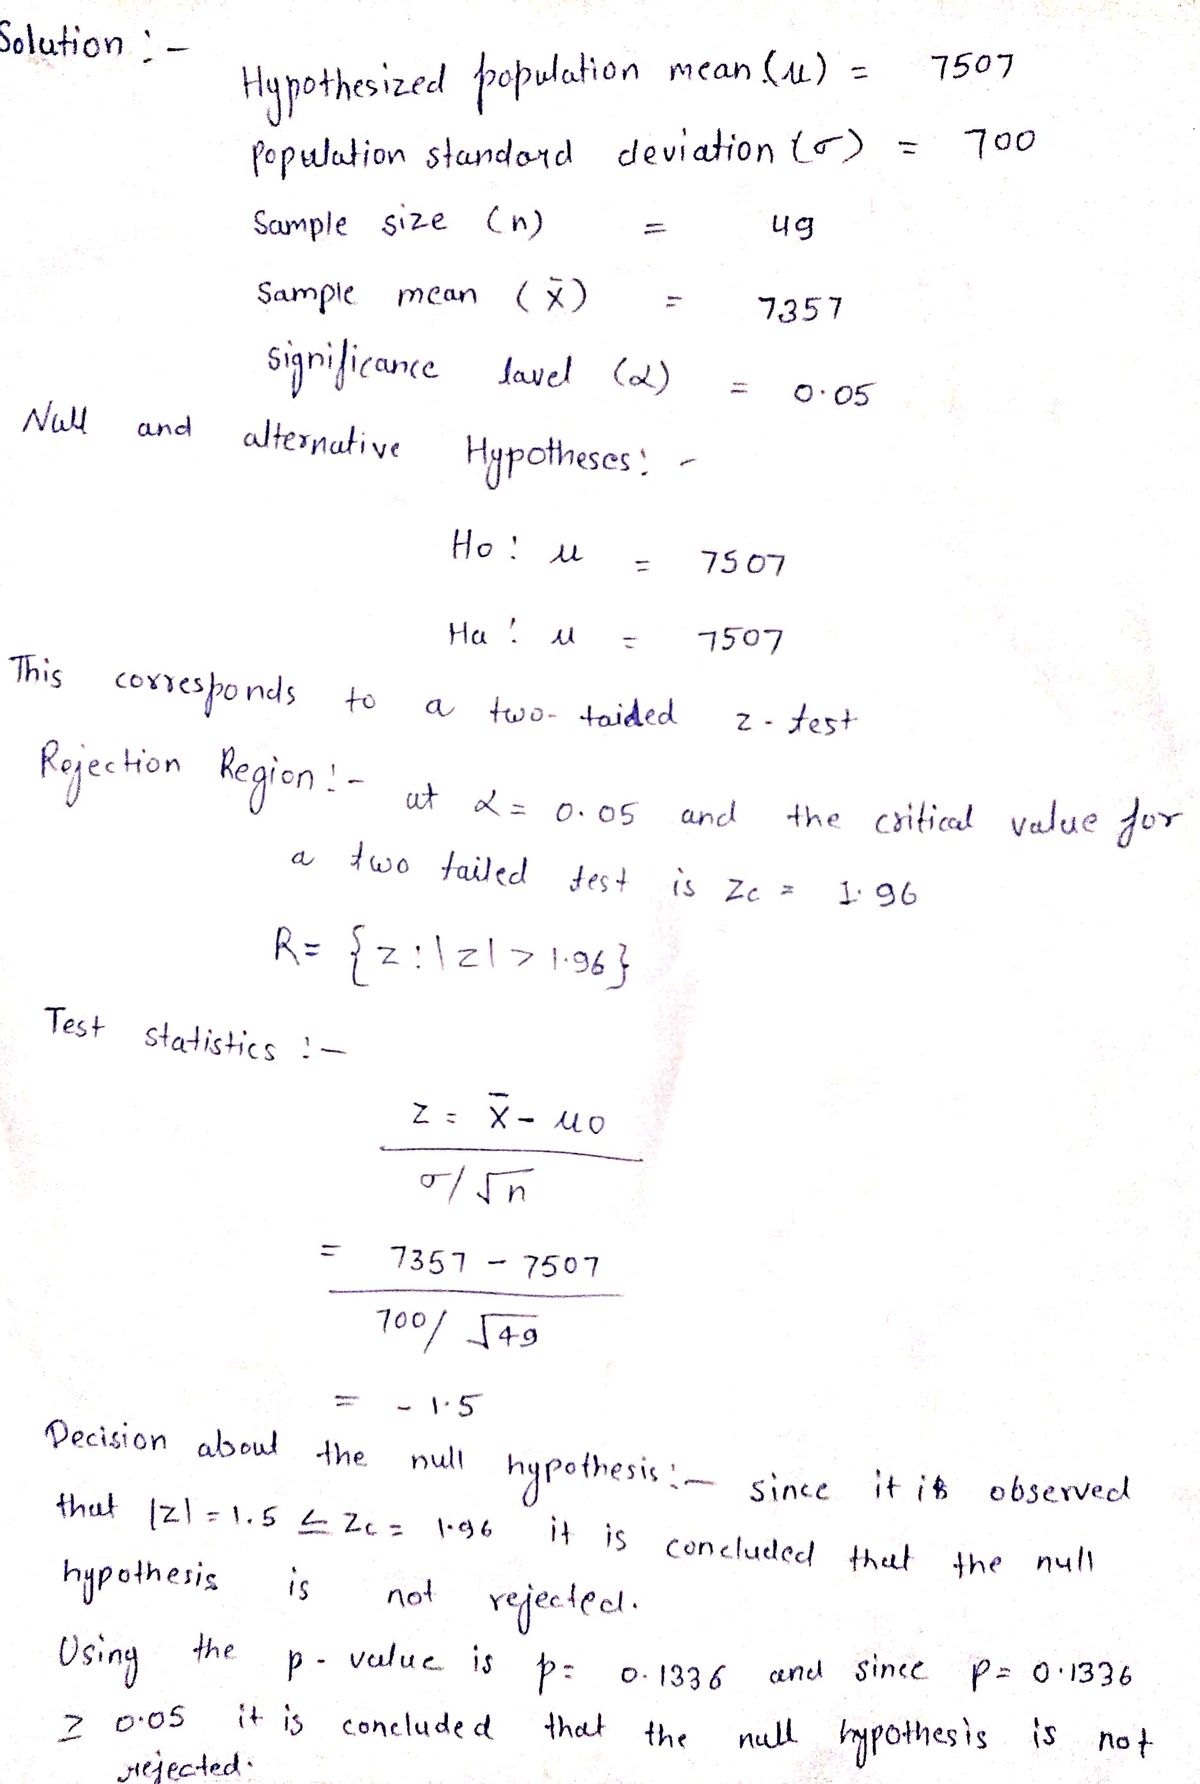 Solution :-
Hypothesized population mean (u) = 7507
Population standard deviation (σ) = 700
Sample size (n) = 49
Sample mean (x̄) = 7357
significance lavel (α) = 0.05
Null and alternative Hypotheses: -
Ho : u = 7507
Ha : u = 7507
This corresponds to a two-taided z-test
Rejection Region:- at α = 0.05 and the critical value for
a two tailed test is Zc = 1.96
R= {z:|z|> 1.96}
Test statistics :-
Z = X̄ - u0
σ/√n
= 7357 - 7507
700/√49
= - 1.5
Decision about the null hypothesis:- since it is observed
that |z| = 1.5 ≤ Zc = 1.96 it is concluded that the null
hypothesis is not rejected.
Using the p-value is p= 0.1336 and since p= 0.1336
≥ 0.05 it is concluded that the null hypothesis is not
rejected.